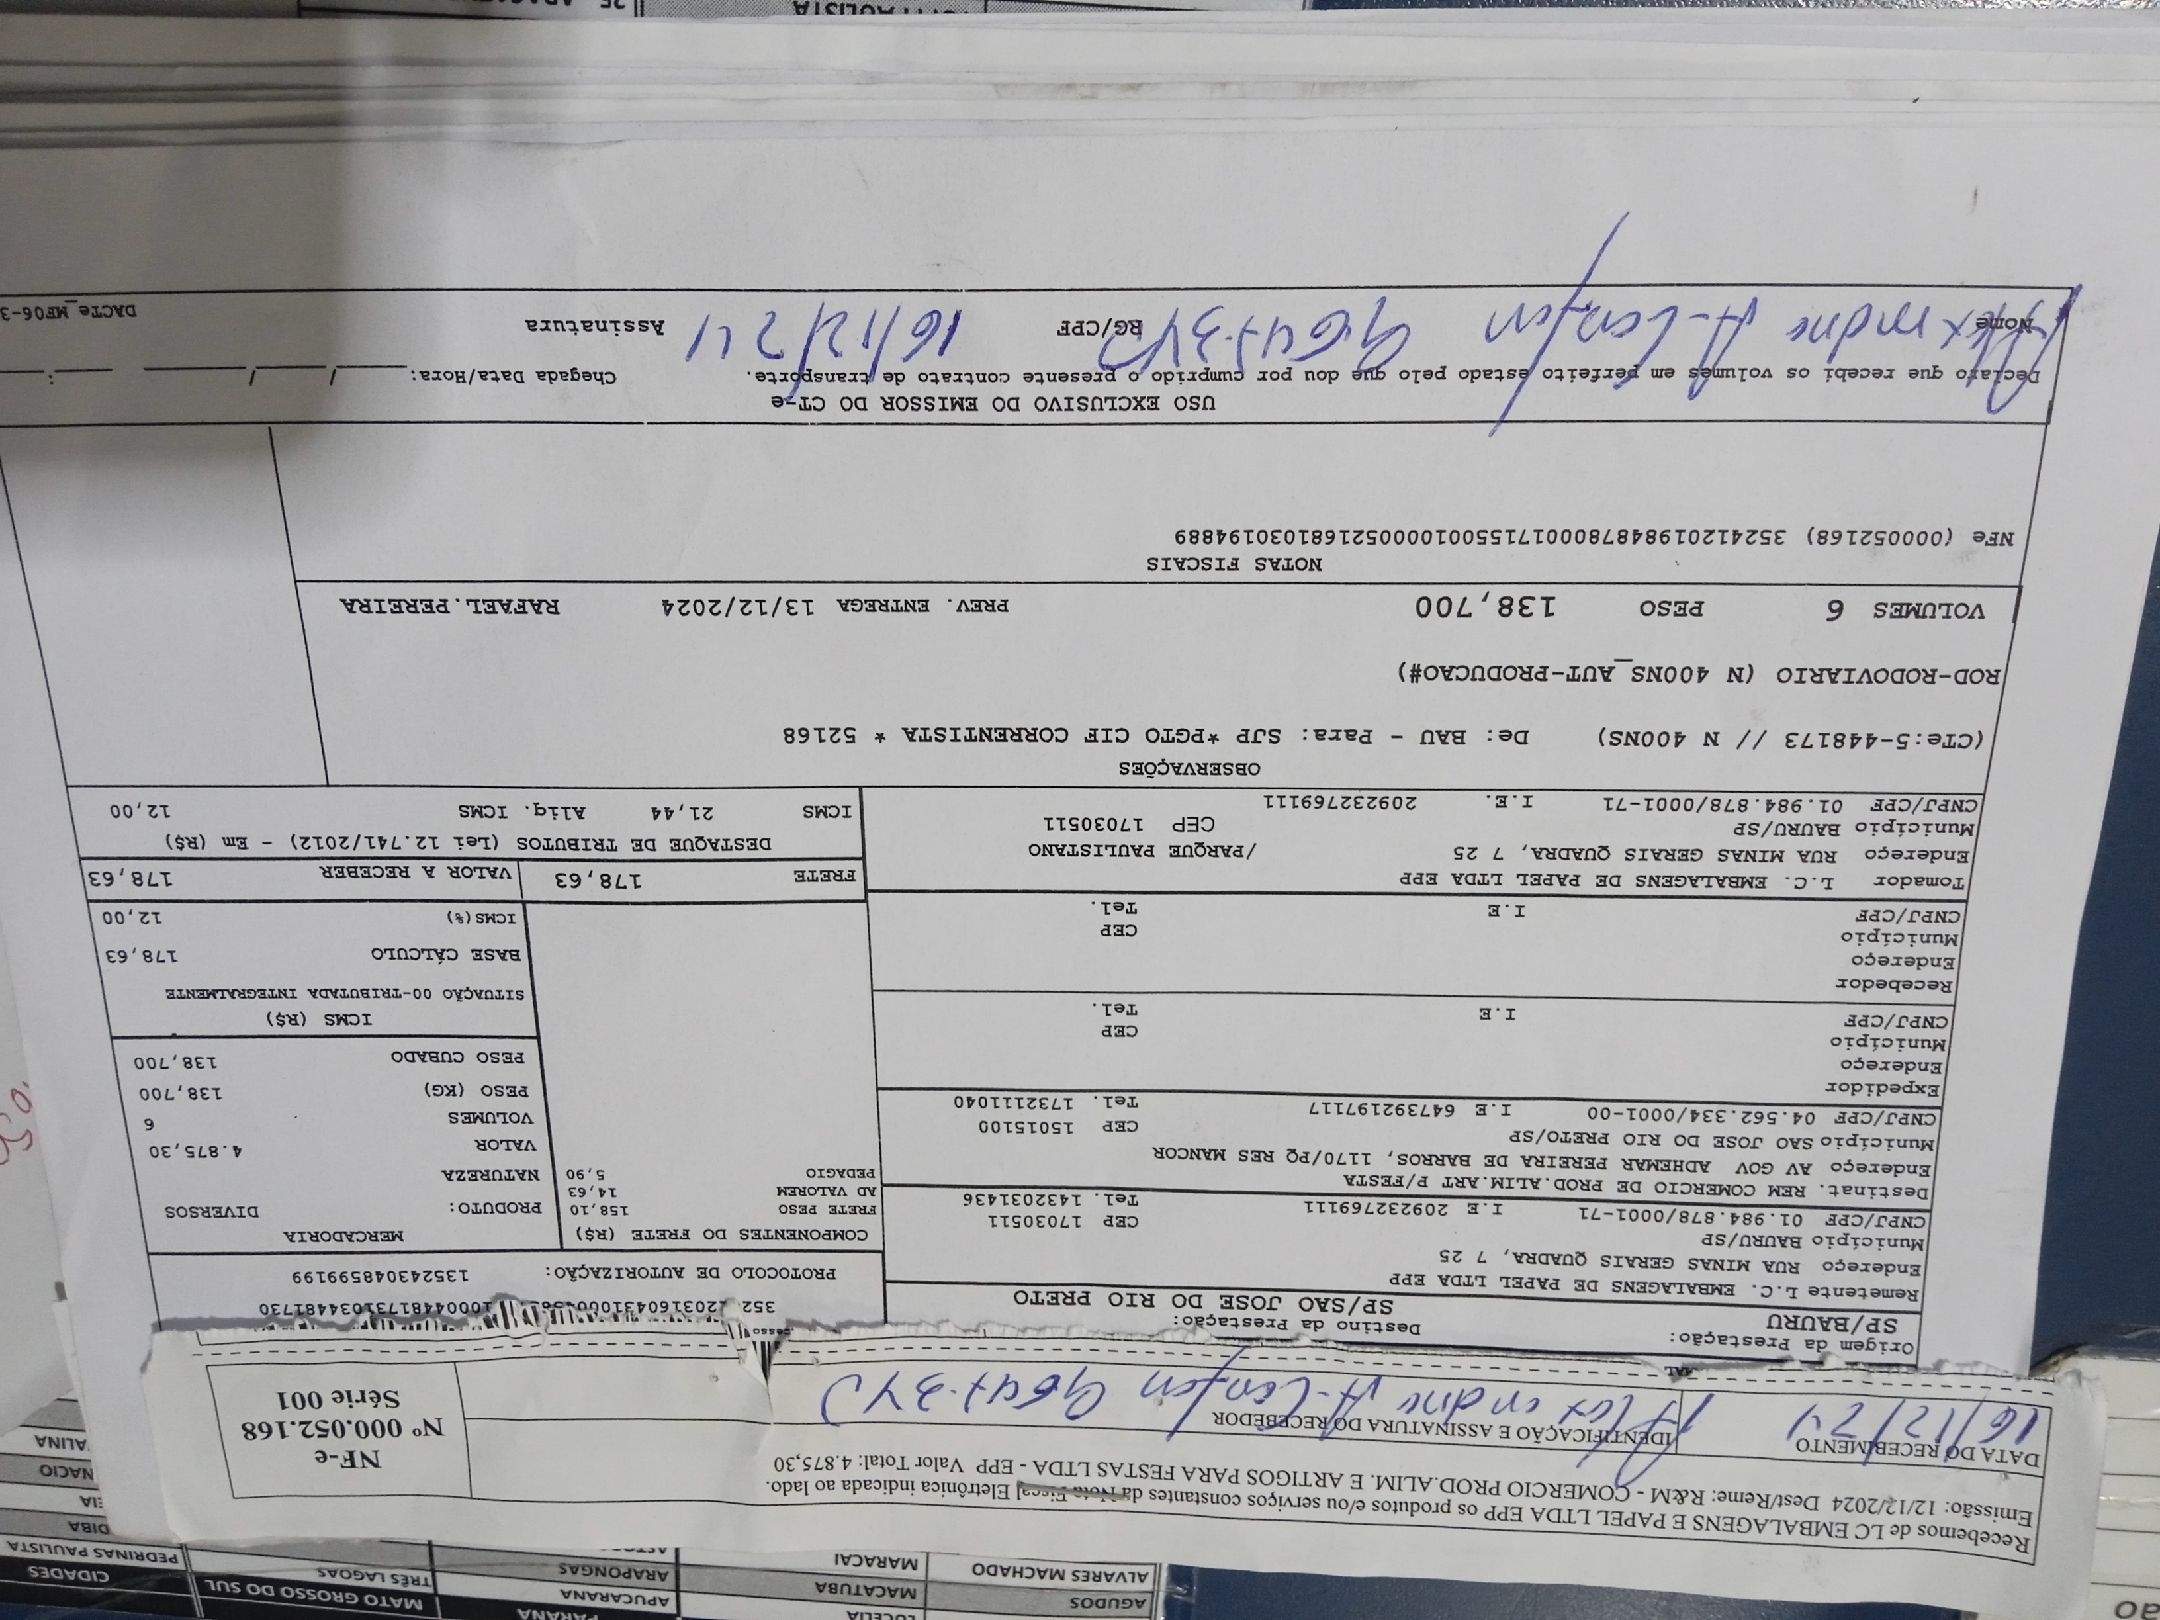 Recebemos de LC EMBALAGENS E PAPEL LTDA EPP os produtos e/ou serviços constantes da Nota Fiscal Eletrônica indicada ao lado.
Emissão: 12/12/2024 Dest/Reme: R&M - COMERCIO PROD.ALIM. E ARTIGOS PARA FESTAS LTDA - EPP Valor Total: 4.875,30
DATA DO RECEBIMENTO
16/12/24
IDENTIFICAÇÃO E ASSINATURA DO RECEBEDOR
NF-e
Nº 000.052.168
Série 001
Origem da Prestação:
SP/BAURU
Destino da Prestação:
SP/SAO JOSE DO RIO PRETO
PROTOCOLO DE AUTORIZAÇÃO: 135243048599199
Remetente L.C. EMBALAGENS DE PAPEL LTDA EPP
Endereço RUA MINAS GERAIS QUADRA, 7 25
Município BAURU/SP CEP 17030511
CNPJ/CPF 01.984.878/0001-71 I.E 209232769111 Tel. 1432031436
Destinat. REM COMERCIO DE PROD.ALIM.ART P/FESTA
Endereço AV GOV ADHEMAR PEREIRA DE BARROS, 1170/PQ RES MANCOR
Município SAO JOSE DO RIO PRETO/SP CEP 15015100
CNPJ/CPF 04.562.334/0001-00 I.E 647392197117 Tel. 173211040
Expedidor
Endereço
Município CEP
CNPJ/CPF I.E Tel.
Recebedor
Endereço
Município CEP
CNPJ/CPF I.E Tel.
Tomador L.C. EMBALAGENS DE PAPEL LTDA EPP
Endereço RUA MINAS GERAIS QUADRA, 7 25 /PARQUE PAULISTANO
Município BAURU/SP CEP 17030511
CNPJ/CPF 01.984.878/0001-71 I.E. 209232769111
COMPONENTES DO FRETE (R$)
FRETE PESO 158,10
AD VALOREM 14,63
PEDAGIO 5,90
MERCADORIA
PRODUTO: DIVERSOS
NATUREZA
VALOR 4.875,30
VOLUMES 6
PESO (KG) 138,700
PESO CUBADO 138,700
ICMS (R$)
SITUAÇÃO 00-TRIBUTADA INTEGRALMENTE
BASE CÁLCULO 178,63
ICMS(%) 12,00
FRETE 178,63 VALOR A RECEBER 178,63
DESTAQUE DE TRIBUTOS (Lei 12.741/2012) - Em (R$)
ICMS 21,44 Aliq. ICMS 12,00
OBSERVAÇÕES
(CTe:5-448173 // N 400NS) De: BAU - Para: SJP *PGTO CIF CORRENTISTA * 52168
ROD-RODOVIARIO (N 400NS_AUT-PRODUCAO#)
VOLUMES 6 PESO 138,700 PREV. ENTREGA 13/12/2024 RAFAEL.PEREIRA
NOTAS FISCAIS
NFe (000052168) 35241201984878000171550010000521681030194889
USO EXCLUSIVO DO EMISSOR DO CT-e
Declaro que recebi os volumes em perfeito estado pelo que dou por cumprido o presente contrato de transporte. Chegada Data/Hora: / / :
Nome RG/CPF 16/12/24 Assinatura
DACTe_MF06-3
AGUDOS
ALVARES MACHADO
LUCELIA
MACATUBA
MARACAI
PARANA
APUCARANA
ARAPONGAS
MATO GROSSO DO SUL
TRÊS LAGOAS
CIDADES
PEDRINAS PAULISTA